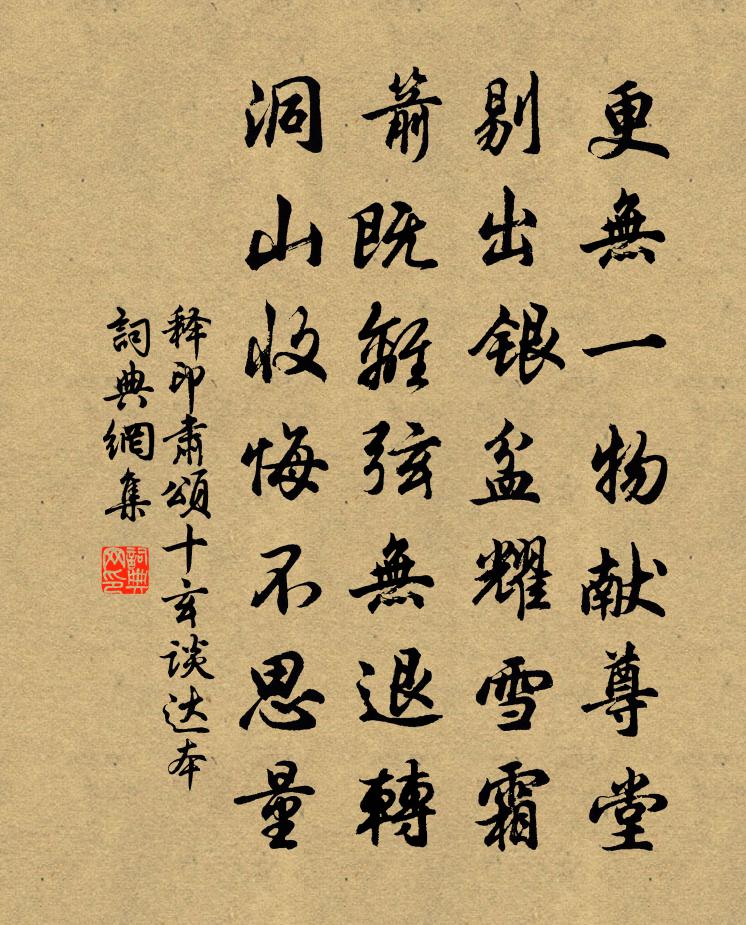 更無一物献尊堂
剔出银盆耀雪霜
箭既離弦無退轉
洞山收悔不思量
释印肃頌十玄谈达本
詞典網集
詞典网印